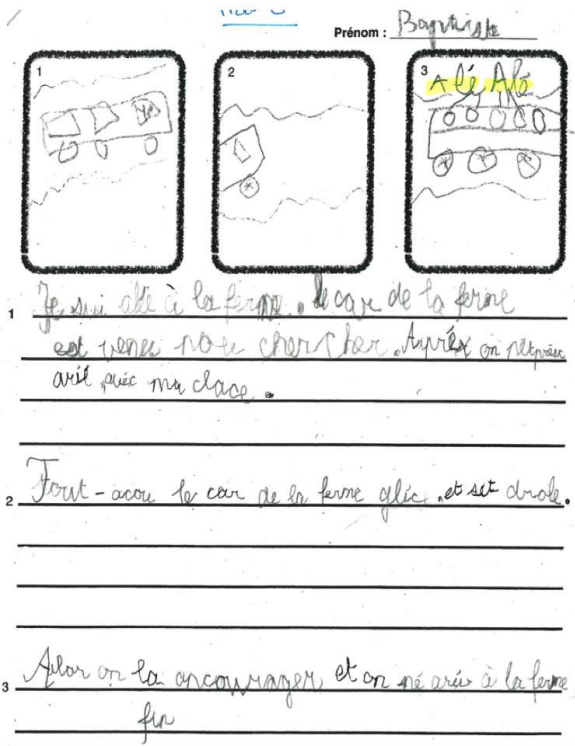 Prénom : Baptiste
1
2
3
Alé Alé
1 Je sui alé à la ferme. le car de la ferme
est venu nou chercher. Après on
avec ma clace.
2 Tout-acou le car de la ferme glic. et set drole.
3 Alor on la ancourager et on né arié à la ferme
fin